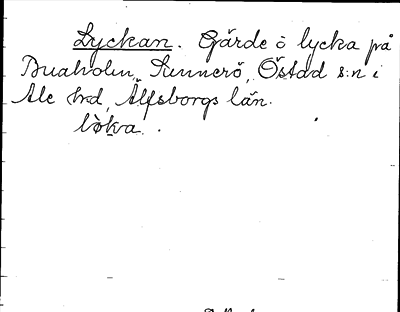 Lyckan. Gärde o lycka på
Buaholm, Sunnerö, Östad s:n i
Ale hrd, Älfsborgs län.
lø̀kა.